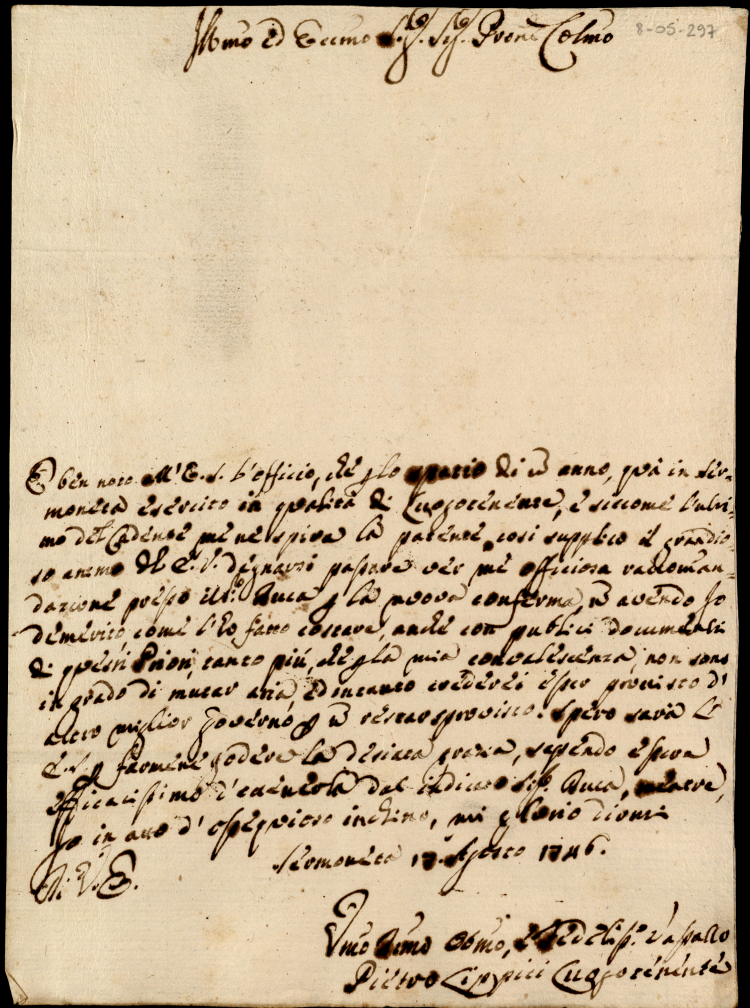 Illmo Ed Eccmo Sig.r Sig. Prone Colmo
8-05-297
È ben noto all'E. V. l'officio, che p lo spatio di un anno, quà in Ser-
moneta esercito in qualità di Luogotenente, e siccome l'ulti-
mo del Cadente me ne spira la patente, così supplico il grandio-
so animo dell'E. V. degnarsi passare per me officiosa raccoman-
dazione presso il Sig.r Duca p la nuova conferma, non avendo Io
demerito, come l'ho fatto costare, anche con publici documenti
di questi Priori, tanto più, che p la mia convalescenza, non sono
in grado di mutar aria, ed intanto crederei esser provisto d'
altro miglior Governo, p non restar sprovisto. Spero sarà
E. V. p farmene godere la desiata grazia, sapendo essere
efficacissimo d'ottenerla dal indicato Sig. Duca, mentre,
Io in atto d'ossequioso inchino, mi glorio dirmi
Di V. E.
Sermoneta 17 Agosto 1746.
Vmo Dmo Obmo, e Fedeliss.o Vassallo
Pietro Cippici Luogotenente